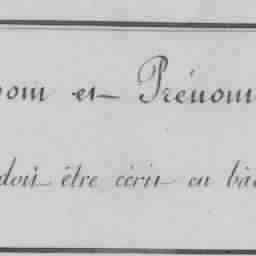 nom et Prénom
doit être écrit en bâ